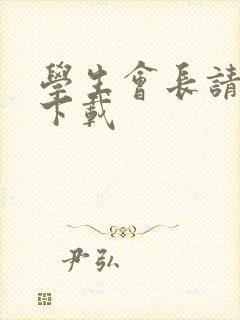 學生會長請
下載
尹弘